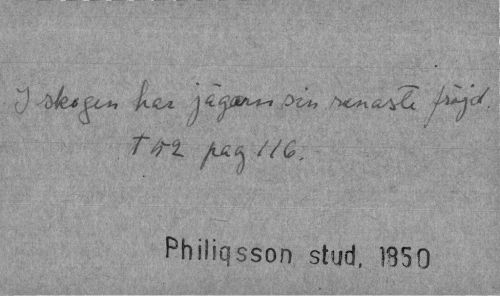 I skogen har jägarn sin renaste fröjd.
T 52 pag 116.
Philiqsson stud, 1850